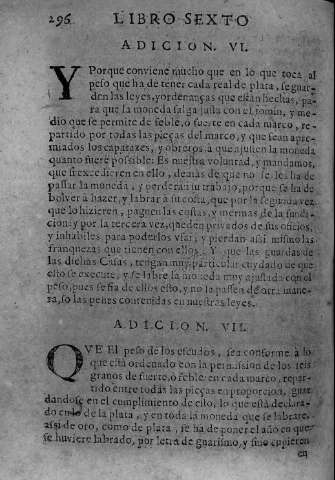 296 LIBRO SEXTO
ADICION. VI.
Y Porque conviene mucho que en lo que toca al
peso que ha de tener cada real de plata, se guar-
den las leyes, y ordenanças que estàn hechas, pa-
ra que la moneda salga justa con el tomin, y me-
dio que se permite de feble, ò fuerte en cada marco, re-
partido por todas las pieças del marco, y que sean apre-
miados los capatazes, y obreros à que ajusten la moneda
quanto fuere possible: Es nuestra voluntad, y mandamos,
que si excedieren en ello, demàs de que no se les ha de
passar la moneda, y perderàn su trabajo, porque se ha de
bolver à hazer, y labrar à su costa, que por la segunda vez
que lo hizieren, paguen las costas, y mermas de la fundi-
cion: y por la tercera vez, queden privados de sus oficios,
y inhabiles para poderlos usar, y pierdan assi mismo las
franquezas que tienen con ellos. Y que las guardas de
las dichas Casas, tengan muy particular cuydado de que
esto se execute, y se labre la moneda muy ajustada con el
peso, pues se fia de ellos esto, y no la passen de otra mane-
ra, so las penas contenidas en nuestras leyes.
ADICION. VII.
QVE El peso de los escudos, sea conforme à lo
que està ordenado con la permission de los seis
granos de fuerte, ò feble en cada marco, repar-
tido entre todas las pieças en proporcion, guar-
dandose en el cumplimiento de ello, lo que està declara-
do en lo de la plata, y en toda la moneda que se labrare,
assi de oro, como de plata, se ha de poner el año en que
se huviere labrado, por letra de guarismo, y si no cupieren
en